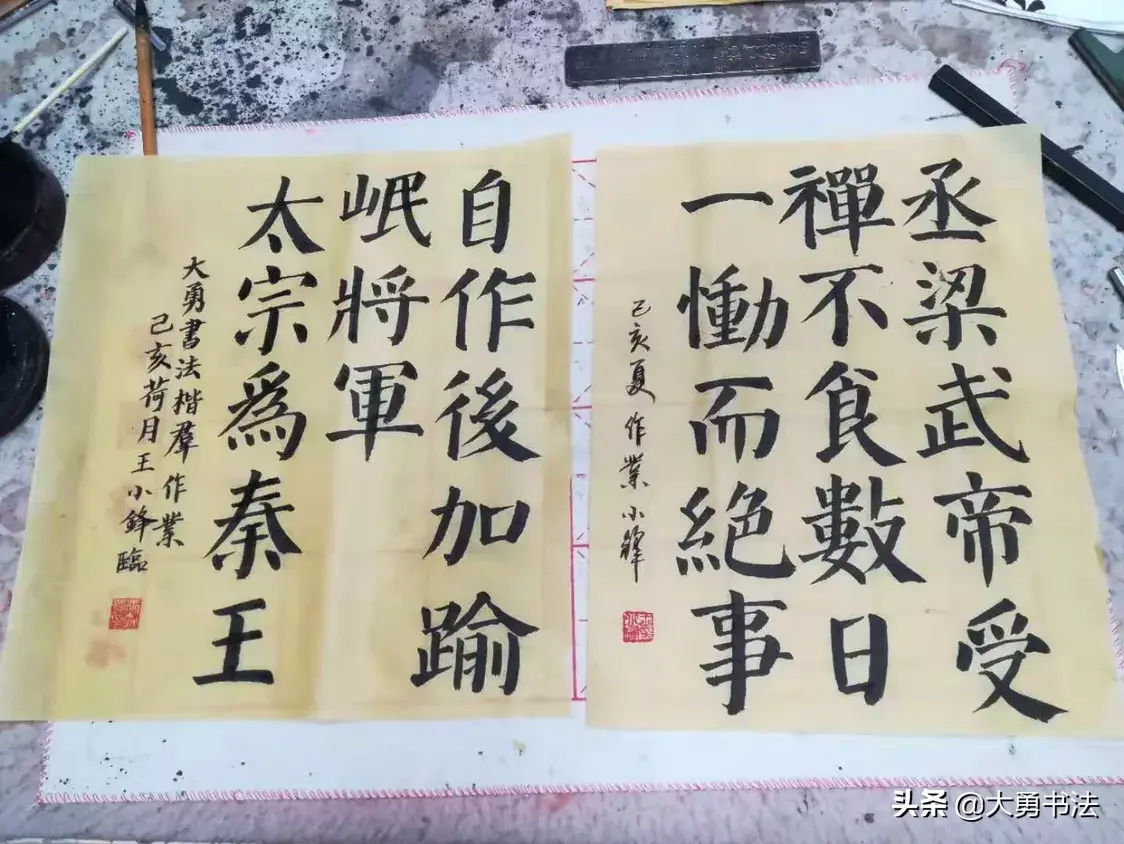 丞梁武帝受
禪不食數日
一慟而絕事
己亥夏作業小鋒
自作後加踰
岷將軍
太宗為秦王
大勇書法楷羣作業
己亥荷月王小鋒臨
头条 @大勇书法